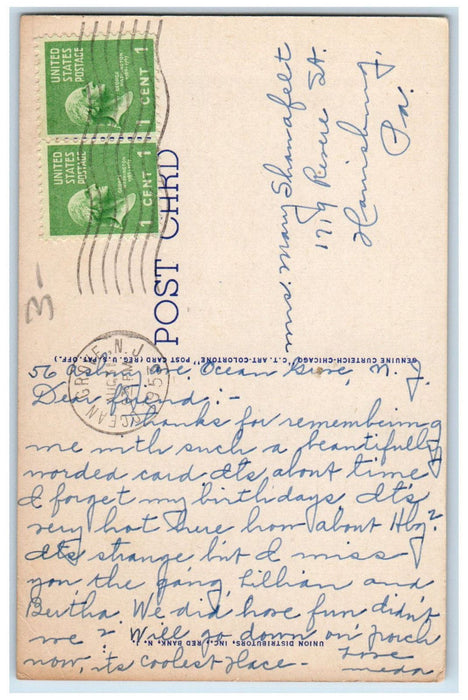 UNITED
STATES
POSTAGE
1 CENT 1
UNITED
STATES
POSTAGE
1 CENT 1
POST CARD
3-
OCEAN GROVE, N.J.
AUG
PM
195
Mrs. Mary Shanafelt
1719 Revere St.
Harrisburg,
Pa.
GENUINE CURTEICH-CHICAGO "C.T. ART-COLORTONE" POST CARD (REG. U.S. PAT. OFF.)
56 Ave. Ocean Grove, N.J.
Dear friend:-
Thanks for remembering
me with such a beautifully
worded card. It's about time
I forget my birthdays. It's
very hot here how about Hbg?
It's strange but I miss
you the gang, Lillian and
Bertha. We did have fun didn't
we? Will go down on porch
now, its coolest place -
Love
UNION DISTRIBUTORS, INC., RED BANK, N. J.